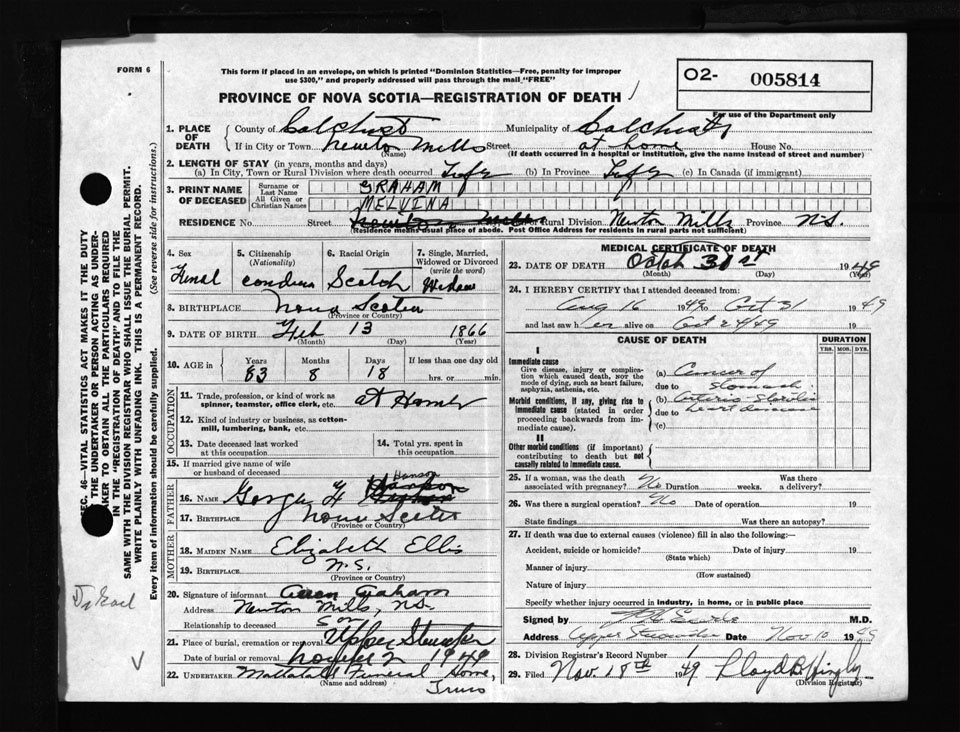 FORM 6
This form if placed in an envelope, on which is printed "Dominion Statistics—Free, penalty for improper
use $300," and properly addressed will pass through the mail "FREE"
O2- 005814
PROVINCE OF NOVA SCOTIA—REGISTRATION OF DEATH
For use of the Department only
1. PLACE OF DEATH
County of Colchester Municipality of Colchester
If in City or Town Newton Mills Street at home House No.
(Name) (If death occurred in a hospital or institution, give the name instead of street and number)
2. LENGTH OF STAY (in years, months and days)
(a) In City, Town or Rural Division where death occurred (b) In Province (c) In Canada (if immigrant)
3. PRINT NAME OF DECEASED
Surname or Last Name GRAHAM
All Given or Christian Names MELVINA
RESIDENCE No. Street or Rural Division Newton Mills Province N.S.
(Residence means usual place of abode. Post Office Address for residents in rural parts not sufficient)
4. Sex
5. Citizenship (Nationality)
6. Racial Origin Scotch
7. Single, Married, Widowed or Divorced (write the word)
8. BIRTHPLACE Nova Scotia
(Province or Country)
9. DATE OF BIRTH Feb 13 1866
(Month) (Day) (Year)
10. AGE in Years 83 Months 8 Days 18 If less than one day old
hrs. or min.
OCCUPATION
11. Trade, profession, or kind of work as spinner, teamster, office clerk, etc. at Home
12. Kind of industry or business, as cotton-mill, lumbering, bank, etc.
13. Date deceased last worked at this occupation
14. Total yrs. spent in this occupation
15. If married give name of wife or husband of deceased
FATHER
16. NAME George Hanson
17. BIRTHPLACE Nova Scotia
(Province or Country)
MOTHER
18. MAIDEN NAME Elizabeth Ellis
19. BIRTHPLACE N.S.
(Province or Country)
20. Signature of informant Graham
Address Newton Mills, N.S.
Relationship to deceased son
21. Place of burial, cremation or removal Upper Stewiacke
Date of burial or removal 2 1949
22. UNDERTAKER Mattatall Funeral Home, Truro
(Name and address)
MEDICAL CERTIFICATE OF DEATH
23. DATE OF DEATH 31st 1949
(Month) (Day)
24. I HEREBY CERTIFY that I attended deceased from:
Aug 16 1949 to Oct 31 1949
and last saw her alive on Oct 24/49 19
CAUSE OF DEATH
DURATION
YRS. MOS. DYS.
I
Immediate cause
Give disease, injury or complication which caused death, NOT the mode of dying, such as heart failure, asphyxia, asthenia, etc.
(a) Cancer of
due to stomach
Morbid conditions, if any, giving rise to immediate cause (stated in order proceeding backwards from immediate cause).
(b)
due to heart disease
(c)
II
Other morbid conditions (if important) contributing to death but not causally related to immediate cause.
25. If a woman, was the death associated with pregnancy? No Duration weeks. Was there a delivery?
26. Was there a surgical operation? No Date of operation 19
State findings Was there an autopsy?
27. If death was due to external causes (violence) fill in also the following:—
Accident, suicide or homicide? Date of injury 19
(State which)
Manner of injury
(How sustained)
Nature of injury
Specify whether injury occurred in industry, in home, or in public place
Signed by M.D.
Address Upper Stewiacke Date Nov 10 1949
28. Division Registrar's Record Number 1
29. Filed Nov. 18th 1949 Lloyd
(Division Registrar)
SEC. 46—VITAL STATISTICS ACT MAKES IT THE DUTY
OF THE UNDERTAKER OR PERSON ACTING AS UNDER-
TAKER TO OBTAIN ALL THE PARTICULARS REQUIRED
IN THE "REGISTRATION OF DEATH" AND TO FILE THE
SAME WITH THE DIVISION REGISTRAR WHO SHALL ISSUE THE BURIAL PERMIT.
WRITE PLAINLY WITH UNFADING INK. THIS IS A PERMANENT RECORD.
Every item of information should be carefully supplied. (See reverse side for instructions.)